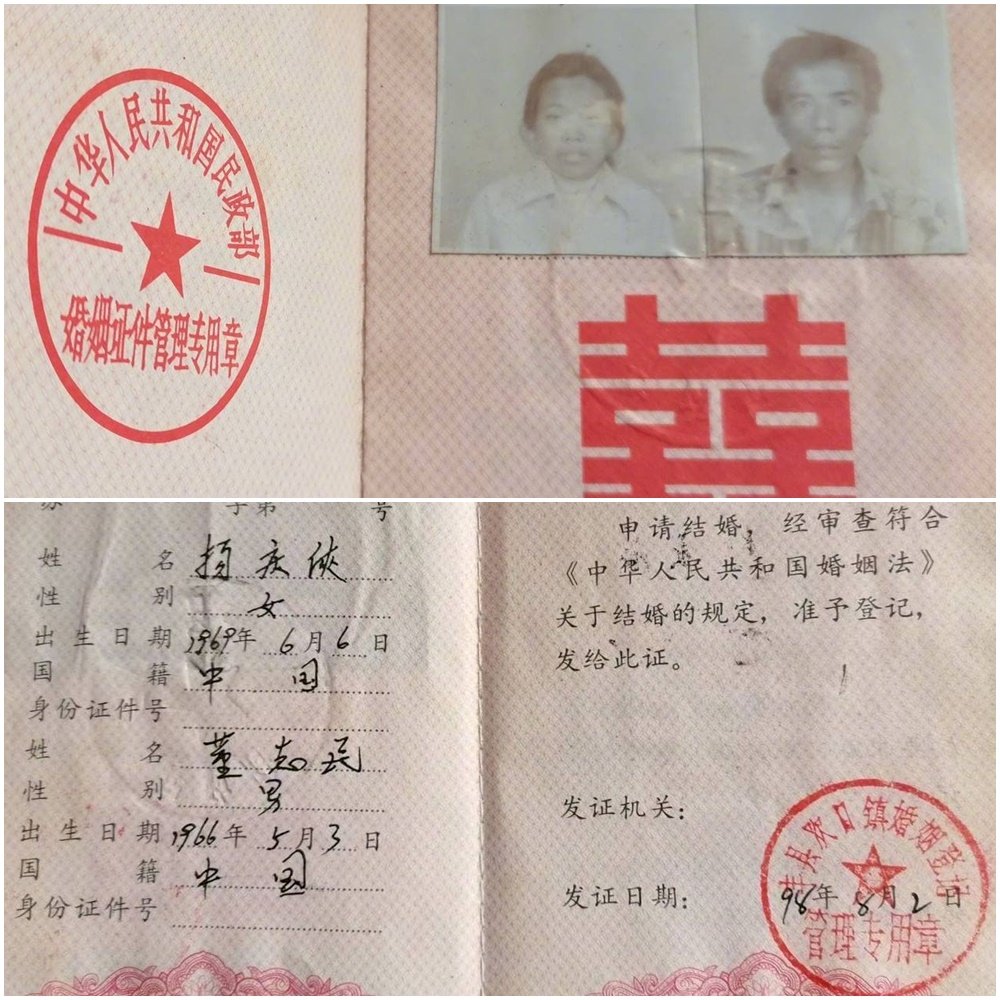 中华人民共和国民政部
婚姻证件管理专用章
囍
字第 号
姓 名 杨庆侠
性 别 女
出生日期 1969年 6月 6日
国 籍 中 国
身份证件号
姓 名 董志民
性 别 男
出生日期 1966年 5月 3日
国 籍 中 国
身份证件号
申请结婚，经审查符合
《中华人民共和国婚姻法》
关于结婚的规定，准予登记，
发给此证。
发证机关：
发证日期： 98年 8月 2日
丰县欢口镇婚姻登记
管理专用章